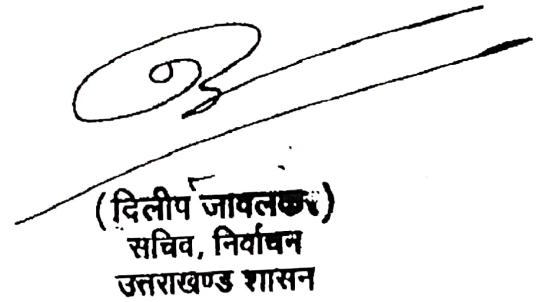 (दिलीप जावलकर)
सचिव, निर्वाचन
उत्तराखण्ड शासन